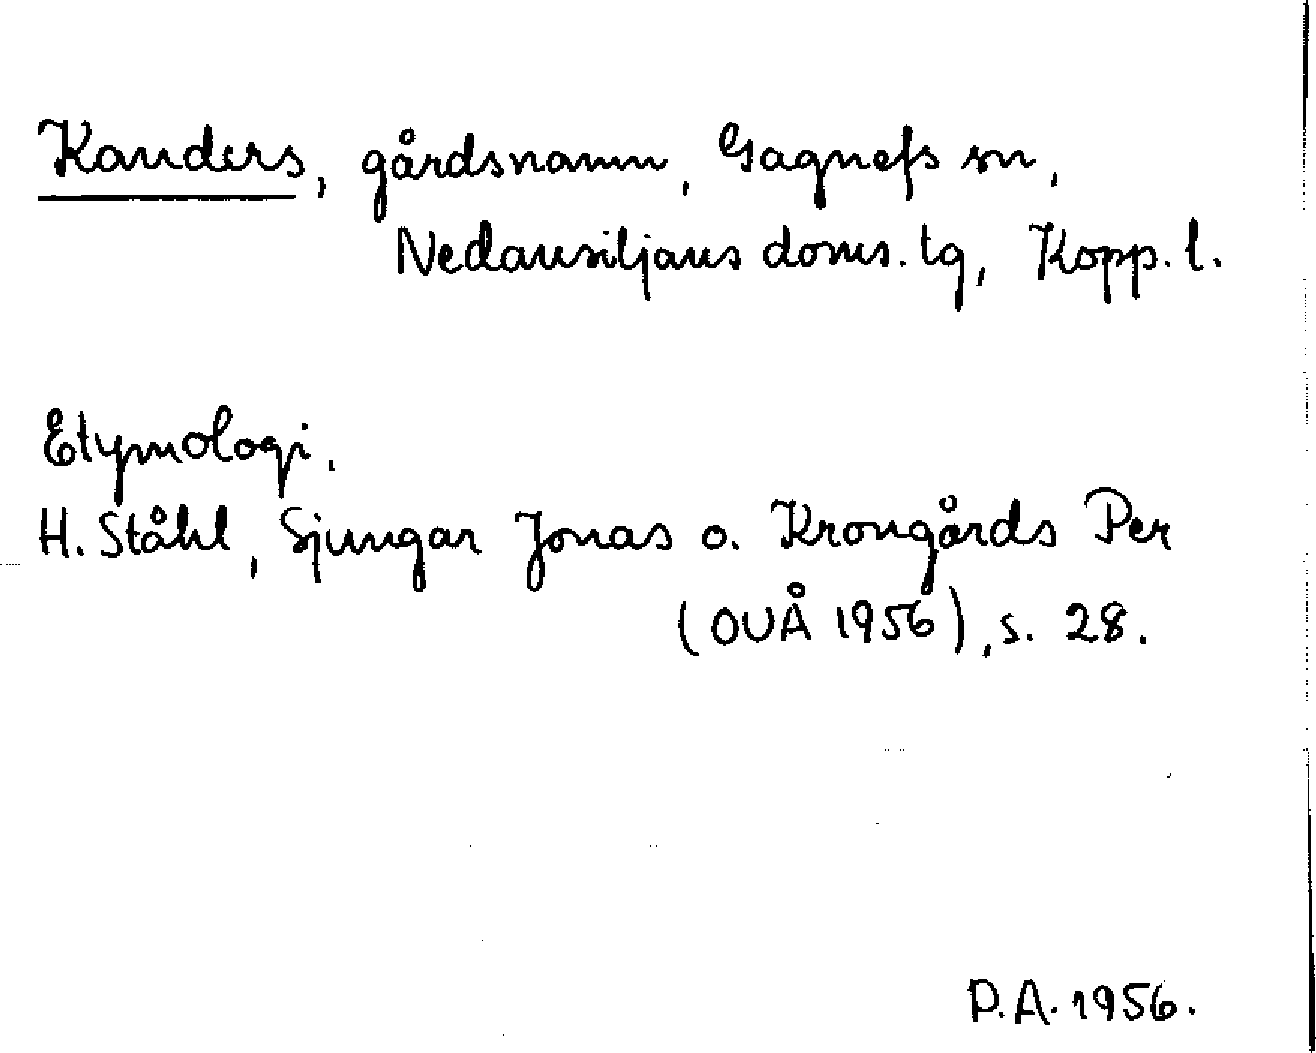 Kanders, gårdsnamn, Gagnefs sn,
Nedansiljans doms. tg, Kopp. l.
Etymologi.
H. Ståhl, Sjungar Jonas o. Krongårds Per
(OUÅ 1956), s. 28.
P.A. 1956.